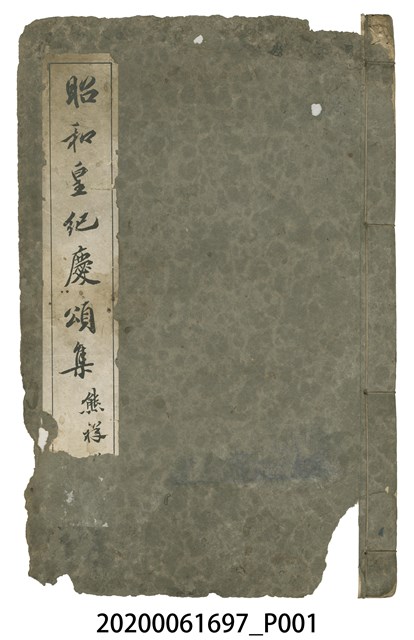 昭和皇紀慶頌集
熊祥
20200061697_P001